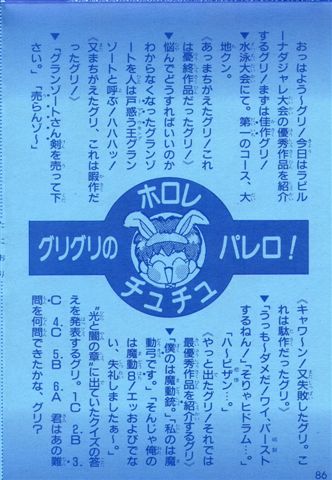 おっはよう〜グリ！今日はラビル
ーナダジャレ大会の優秀作品を紹介
するグリ！まずは佳作グリ！
▼水泳大会にて。第一のコース、大
地クン。
〈あっまちがえたグリ！これ
は憂終作品だったグリ！〉
▼悩んでどうすればいいのか
わからなくなったグランゾ
ートを人は戸惑う王グラン
ゾートと呼ぶ！ハハハッ！
〈又まちがえたグリ、これは暇作だ
ったグリ！〉
▼「グランゾートさん剣を売って下
さい。」「売らんゾ〜」
グリグリの
ホロレ
チュチュ
パレロ！
〈キャワ〜ン！又失敗したグリ。こ
れは駄作だったグリ。〉
▼「うっも〜ダメだ！ワイ、バースト
するねん！」「そりゃヒドラム…。」
「ハ〜ザ…。」
〈やっと出たグリ！それでは
最優秀作品を紹介するグリ〉
▼「僕のは魔動銃。」「私のは魔
動弓です。」「そんじゃ俺の
は魔動8！エッおよびでな
い、失礼しましたぁ〜。」
“光と闇の章”に出ていたクイズの答
えを発表するグリ。1C 2.B 3.
C 4.C 5.B 6.A 君はあの難
問を何問できたかな、グリ？
86